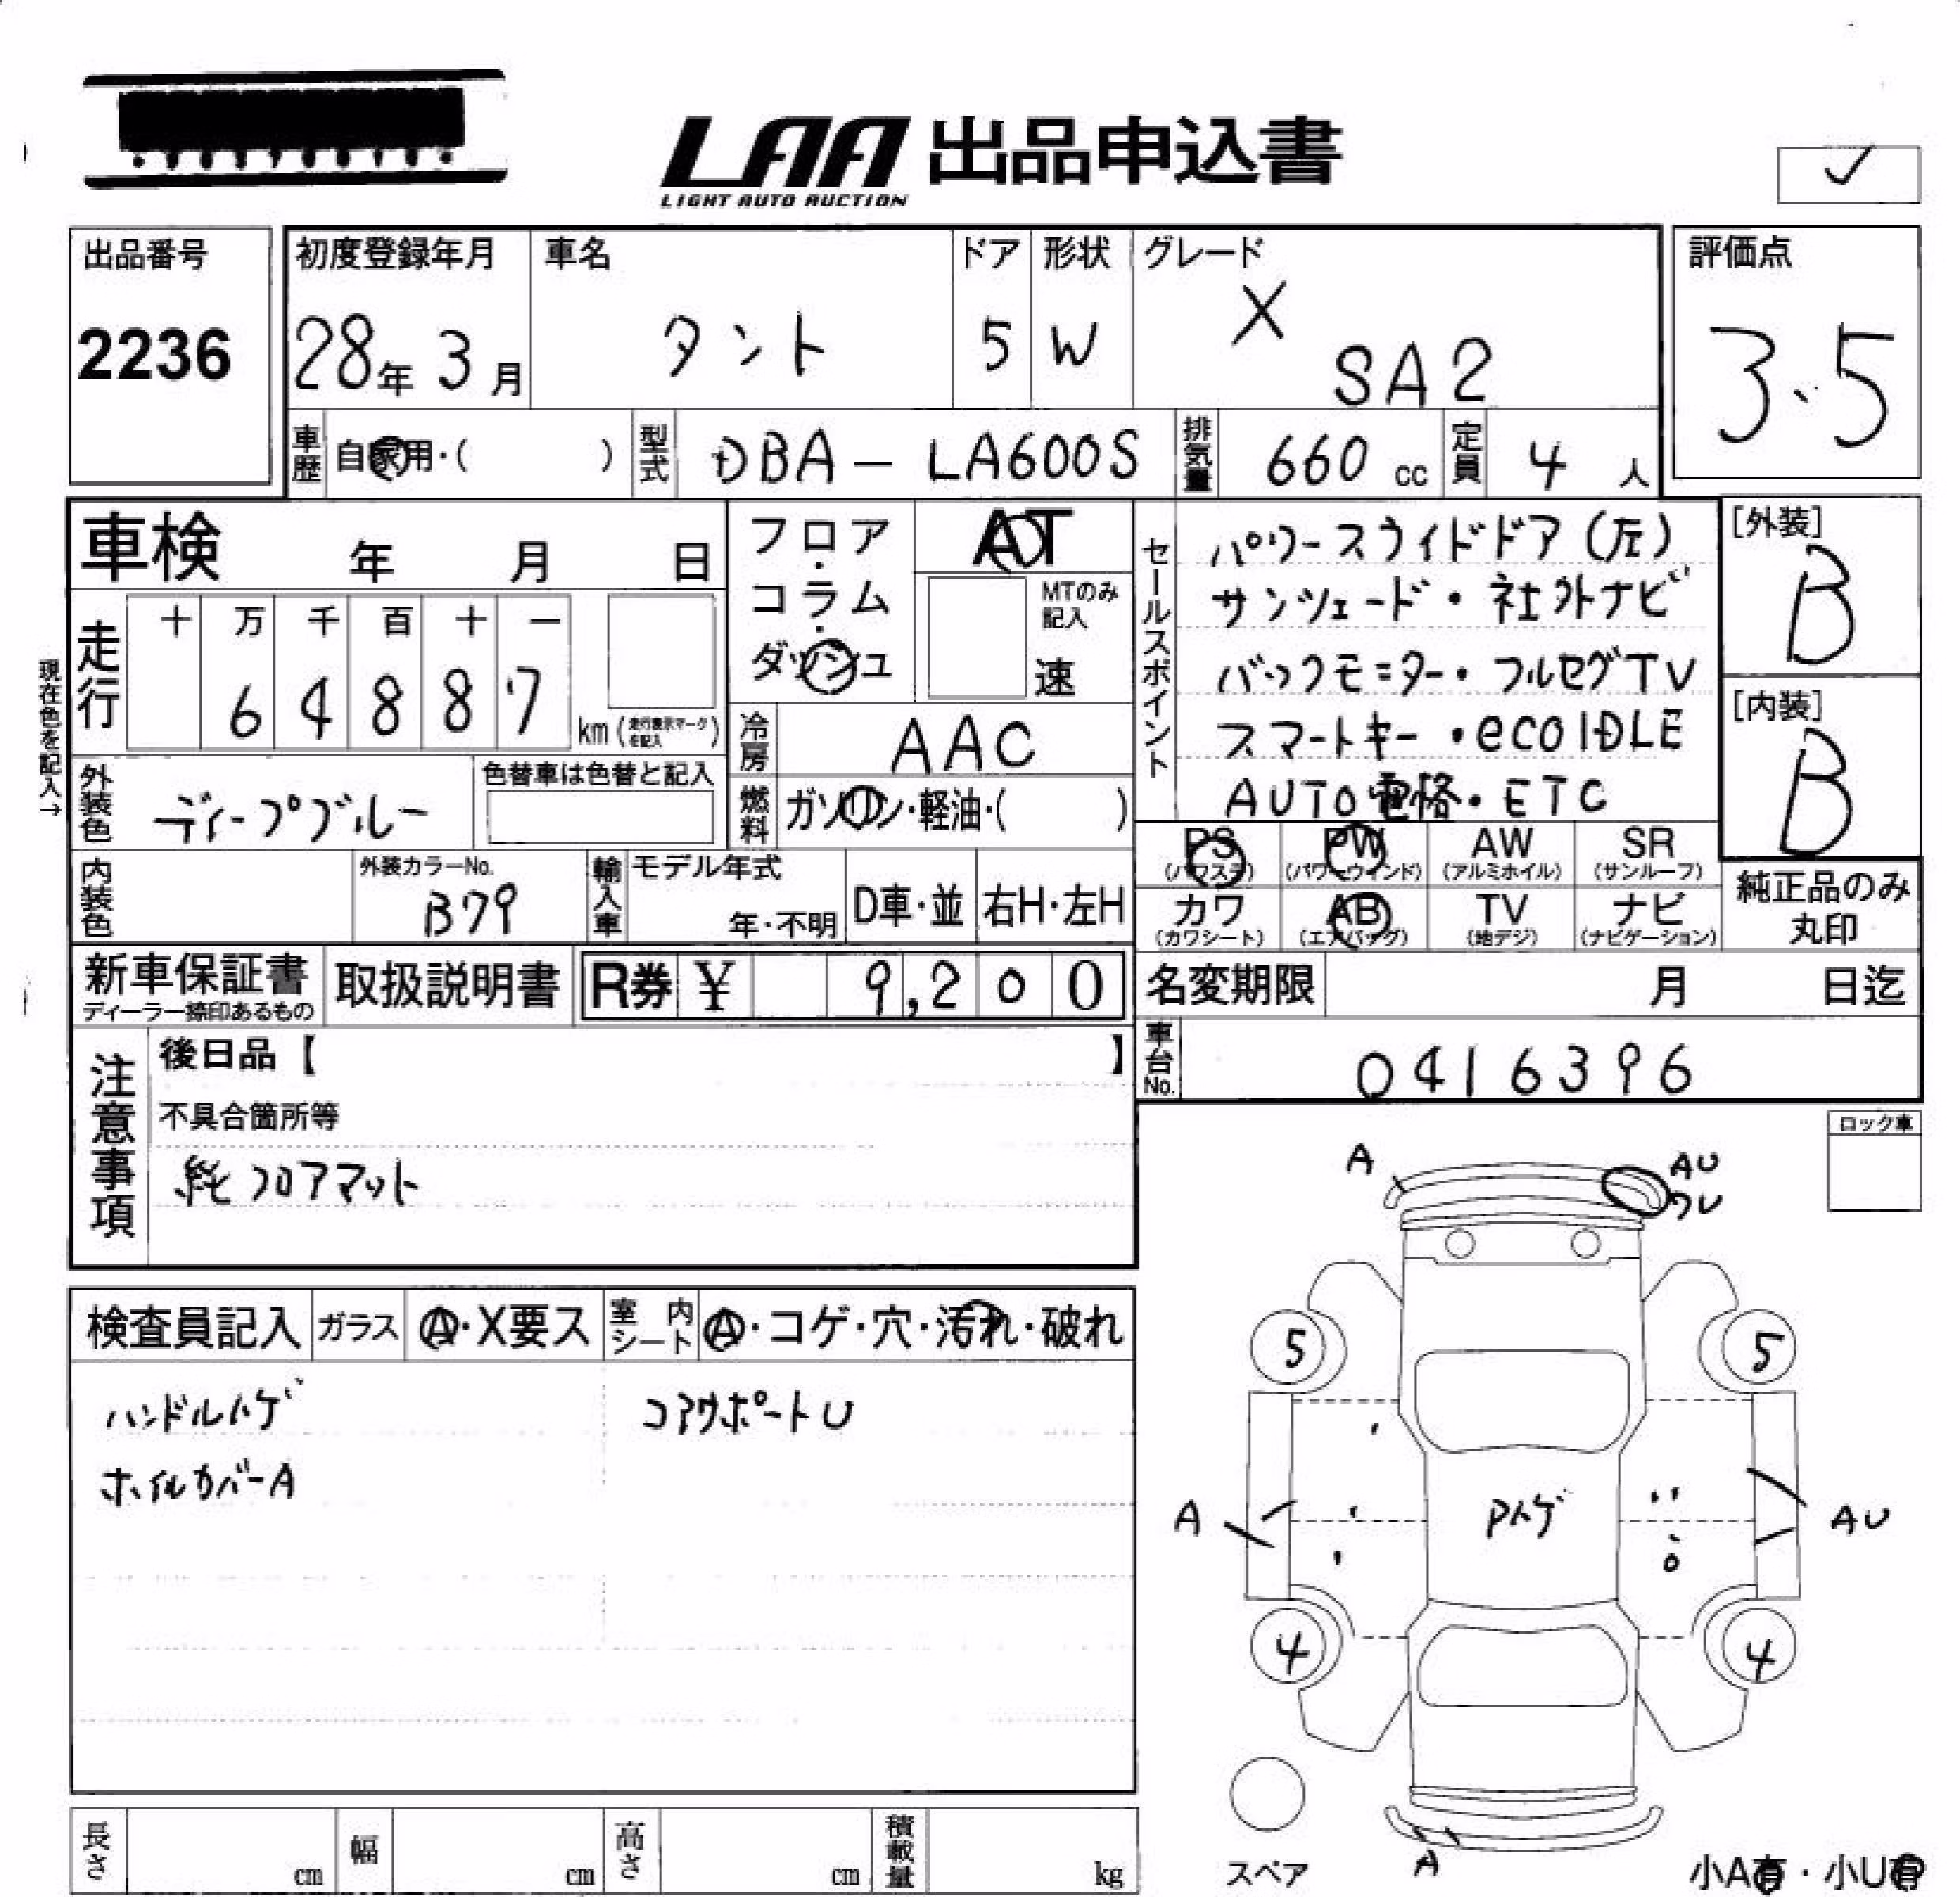 LAA 出品申込書
LIGHT AUTO AUCTION
✓
出品番号
2236
初度登録年月
28年 3月
車名
タント
ドア
5
形状
W
グレード
X
SA2
評価点
3.5
車歴 自家用・( )
型式 DBA - LA600S
排気量 660 cc
定員 4 人
車検 年 月 日
フロア・コラム・ダッシュ
AT
MTのみ記入
速
セールスポイント
パワースライドドア(左)
サンシェード・社外ナビ
バックモニター・フルセグTV
スマートキー・eco IDLE
AUTO電格・ETC
[外装]
B
[内装]
B
現在色を記入→
走行
十 万 千 百 十 一
6 4 8 8 7
km(走行表示マークを記入)
冷房 AAC
外装色 ディープブルー
色替車は色替と記入
燃料 ガソリン・軽油・( )
PS (パワステ)
PW (パワーウインド)
AW (アルミホイル)
SR (サンルーフ)
カワ (カワシート)
AB (エアバッグ)
TV (地デジ)
ナビ (ナビゲーション)
純正品のみ
丸印
内装色
外装カラーNo.
B79
輸入車
モデル年式
年・不明
D車・並
右H・左H
新車保証書
ディーラー捺印あるもの
取扱説明書
R券 ¥ 9,200
名変期限 月 日迄
車台No. 0416396
注意事項
後日品【 】
不具合箇所等
純フロアマット
ロック車
検査員記入
ガラス A・X要ス
室内シート A・コゲ・穴・汚れ・破れ
ハンドルハゲ
コアサポートU
ホイルカバーA
A
AU
ワレ
5
5
A
Pハゲ
AU
4
4
スペア
A
小A有・小U有
長さ cm
幅 cm
高さ cm
積載量 kg